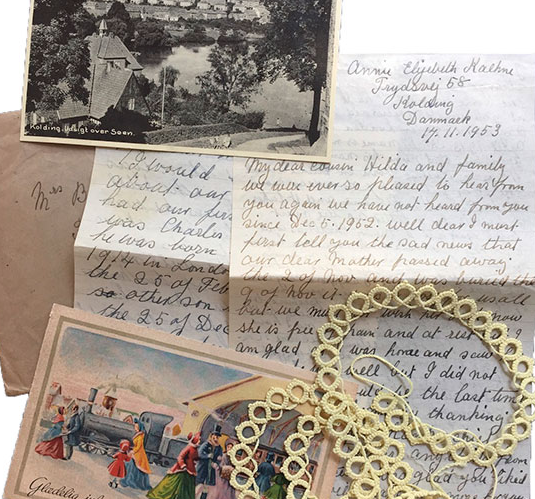 Kolding. Udsigt over Søen.
Annie Elizebeth Kaehne
Frydsvej 58
Kolding
Danmark
17.11.1953
My dear cousin Hilda and family
we were ever so pleased to hear from
you again we have not heard from you
since Dec 5. 1952. well dear I must
first tell you the sad news that
our dear Mother passed away
the 2 of Nov and was buried the
9 of Nov it us all
but we must wish her now
she is free pain and at rest
am glad I was home and saw
well but I did not
the last time
thanking
glad you
Mrs B
I would
about our
had our firs
was Charle
he was born
1914 in Londo
the 25 of Feb
so other son
the 25 of Dec
Glædelig jul